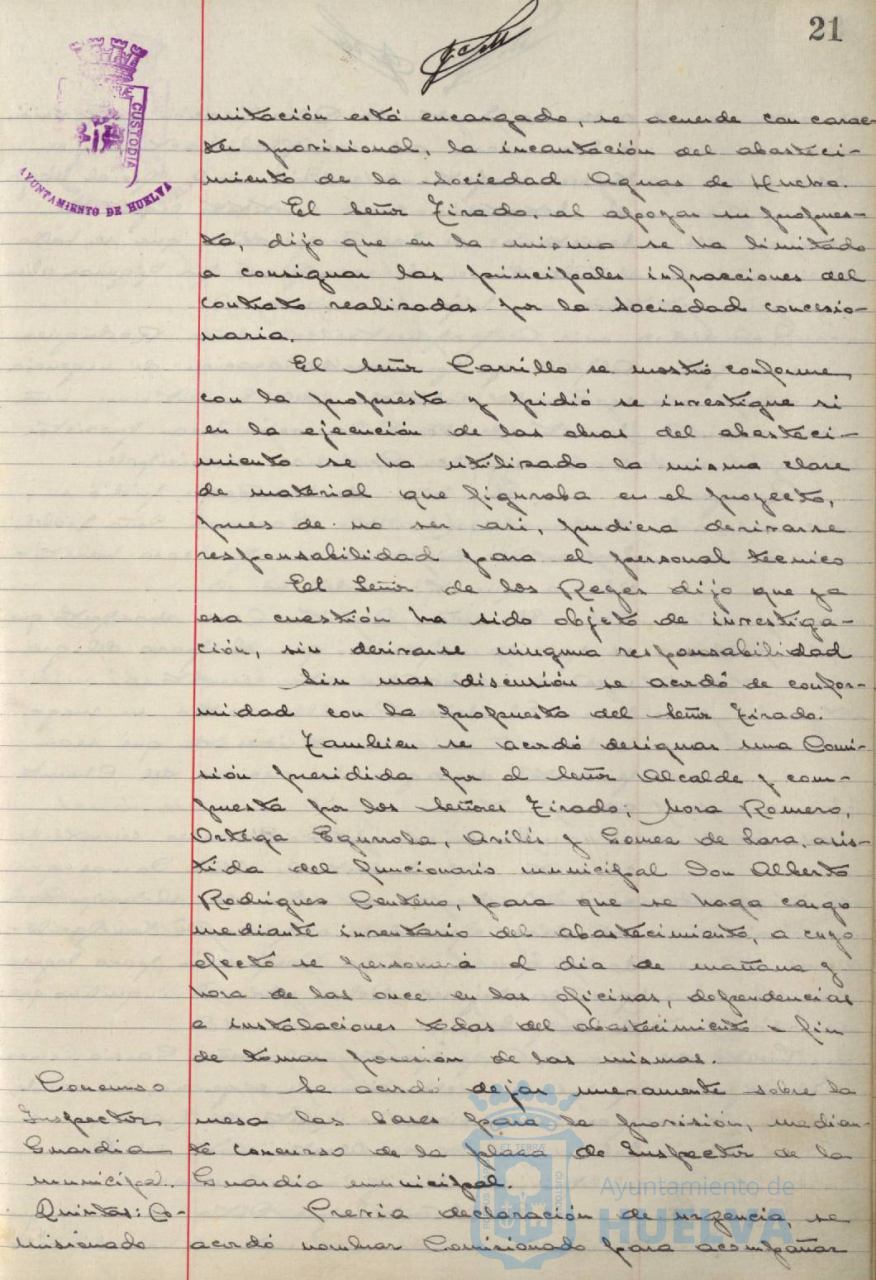 21
CUSTODIA
AYUNTAMIENTO DE HUELVA
mitación está encargado, se acuerde con carac-
ter provisional, la incautación del abasteci-
miento de la Sociedad Aguas de Huelva.
El Señor Tirado, al apoyar su propues-
ta, dijo que en la misma se ha limitado
a consignar las principales infracciones del
contrato realizadas por la Sociedad concesio-
naria.
El Señor Carrillo se mostró conforme
con la propuesta y pidió se investigue si
en la ejecución de las obras del abasteci-
miento se ha utilizado la misma clase
de material que figuraba en el proyecto,
pues de no ser asi, pudiera derivarse
responsabilidad para el personal tecnico
El Señor de los Reyes dijo que ya
esa cuestión ha sido objeto de investiga-
ción, sin derivarse ninguna responsabilidad
Sin mas discusión se acordó de confor-
midad con la propuesta del Señor Tirado.
Tambien se acordó designar una Comi-
sión presidida por el Señor Alcalde y com-
puesta por los Señores Tirado, Mora Romero,
Ortega Egurrola, Avilés y Gomez de Lara, asis-
tida del funcionario municipal Don Alberto
Rodriguez Centeno, para que se haga cargo
mediante inventario del abastecimiento, a cuyo
efecto se personará el dia de mañana y
hora de las once en las oficinas, dependencias
e instalaciones todas del abastecimiento a fin
de tomar posesión de las mismas.
Concurso
Inspector
Guardia
municipal.
Se acordó dejar nuevamente sobre la
mesa las bases para la provisión, median-
te concurso de la plaza de Inspector de la
Guardia municipal.
Quintas: Co-
misionado
Previa declaración de urgencia, se
acordó nombrar Comisionado para acompañar
Ayuntamiento de
HUELVA